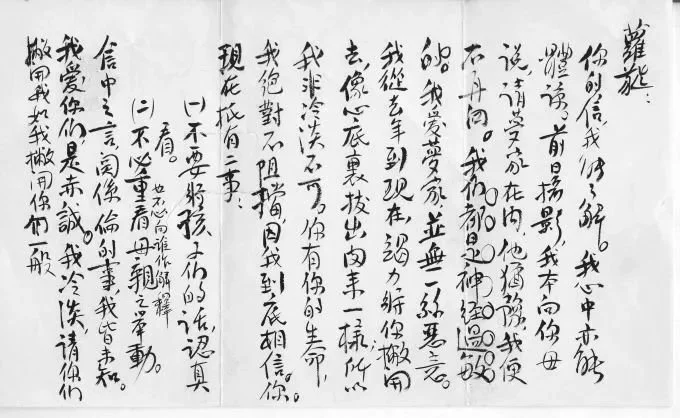 蘿蕤：
你的信，我能了解。我心中亦能
體諒。前日攝影，我本向你母
說，請夢家在內，他猶豫，我便
不再问。我们都是神經過敏
的。我愛夢家，並無一絲惡意。
我從去年到現在，竭力將你撇開
去，像心底裏拔出肉来一樣；所以
我非冷淡不可。你有你的生命，
我絕對不阻擋，因我到底相信你。
現在祇有二事：
(一)不要將孩子们的話，認真
看。
也不必向誰作解釋
(二)不必重看母親之舉動。
信中之言，関係倫的事，我皆未知。
我愛你們，是赤誠。我冷淡，請你们
撇開我如我撇開你们一般